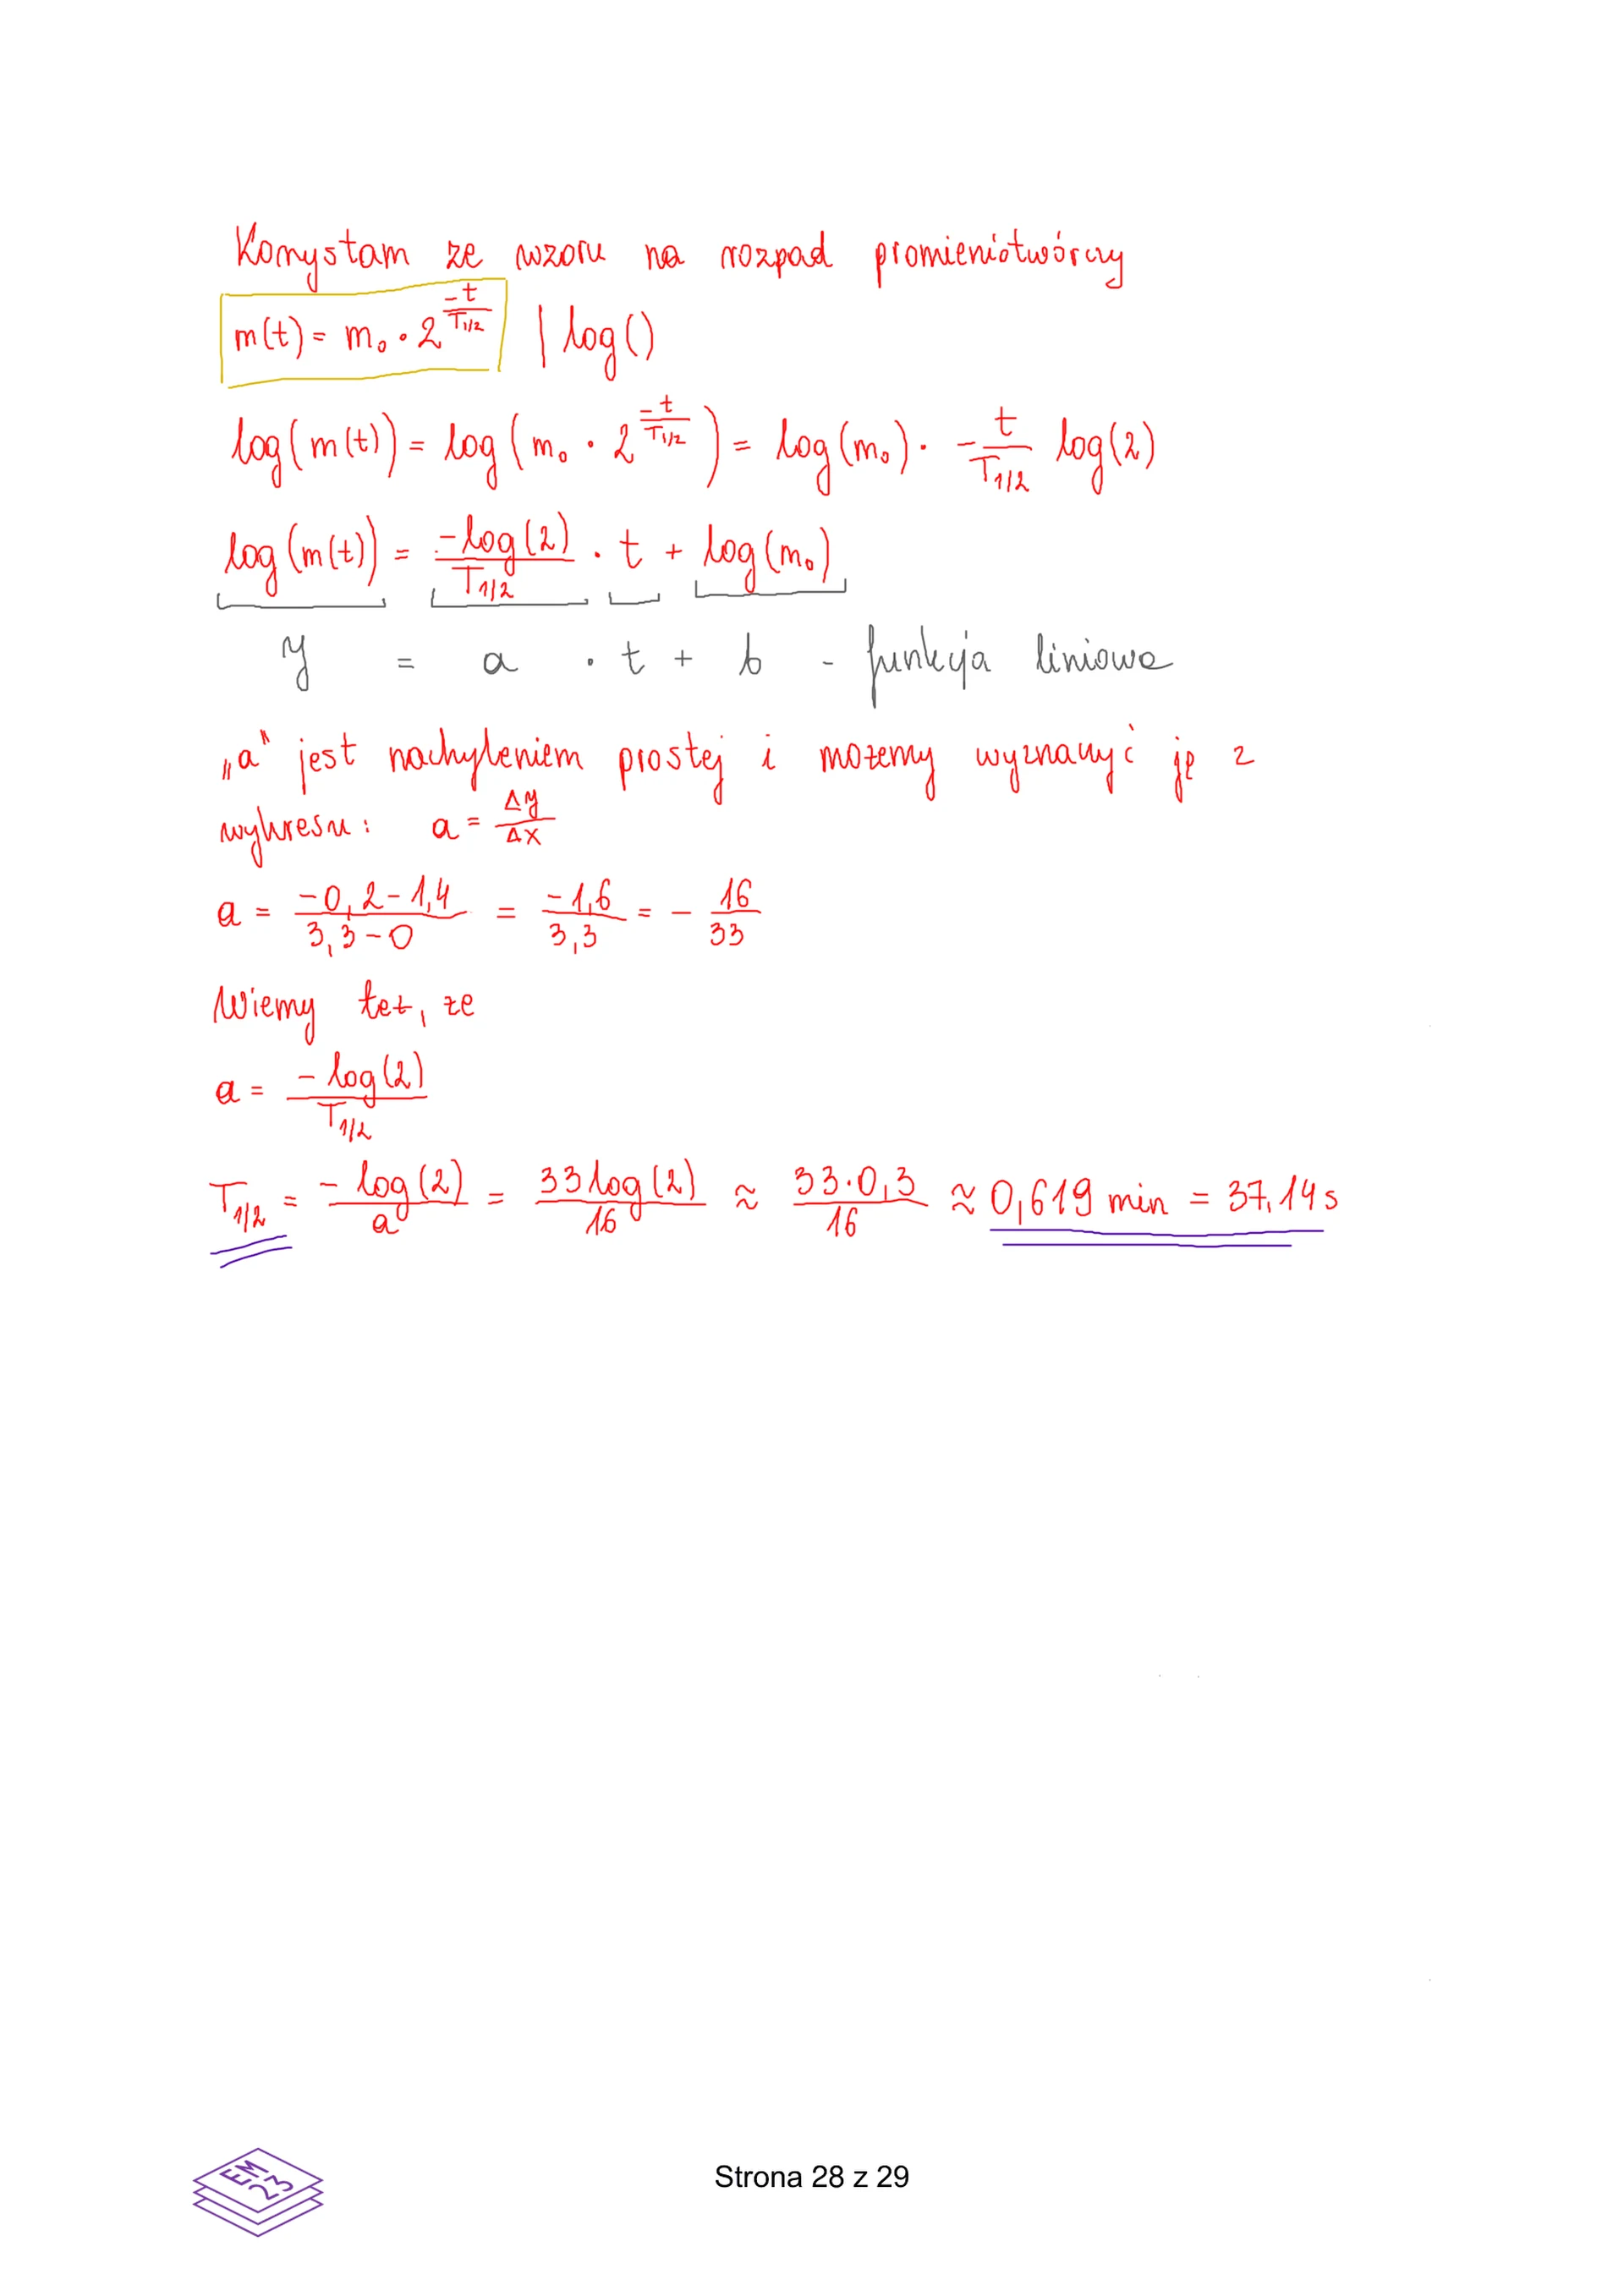 Korzystam ze wzoru na rozpad promieniotwórczy
m(t) = m₀ · 2^(-t/T_1/2) | log()
log(m(t)) = log(m₀ · 2^(-t/T_1/2)) = log(m₀) · -t/T_1/2 log(2)
log(m(t)) = -log(2)/T_1/2 · t + log(m₀)
y = a · t + b - funkcja liniowa
„a" jest nachyleniem prostej i możemy wyznaczyć ję z
wykresu: a = Δy/Δx
a = (-0,2-1,4)/(3,3-0) = -1,6/3,3 = - 16/33
Wiemy też, że
a = -log(2)/T_1/2
T_1/2 = -log(2)/a = 33log(2)/16 ≈ 33·0,3/16 ≈ 0,619 min = 37,14s
EM
23
Strona 28 z 29